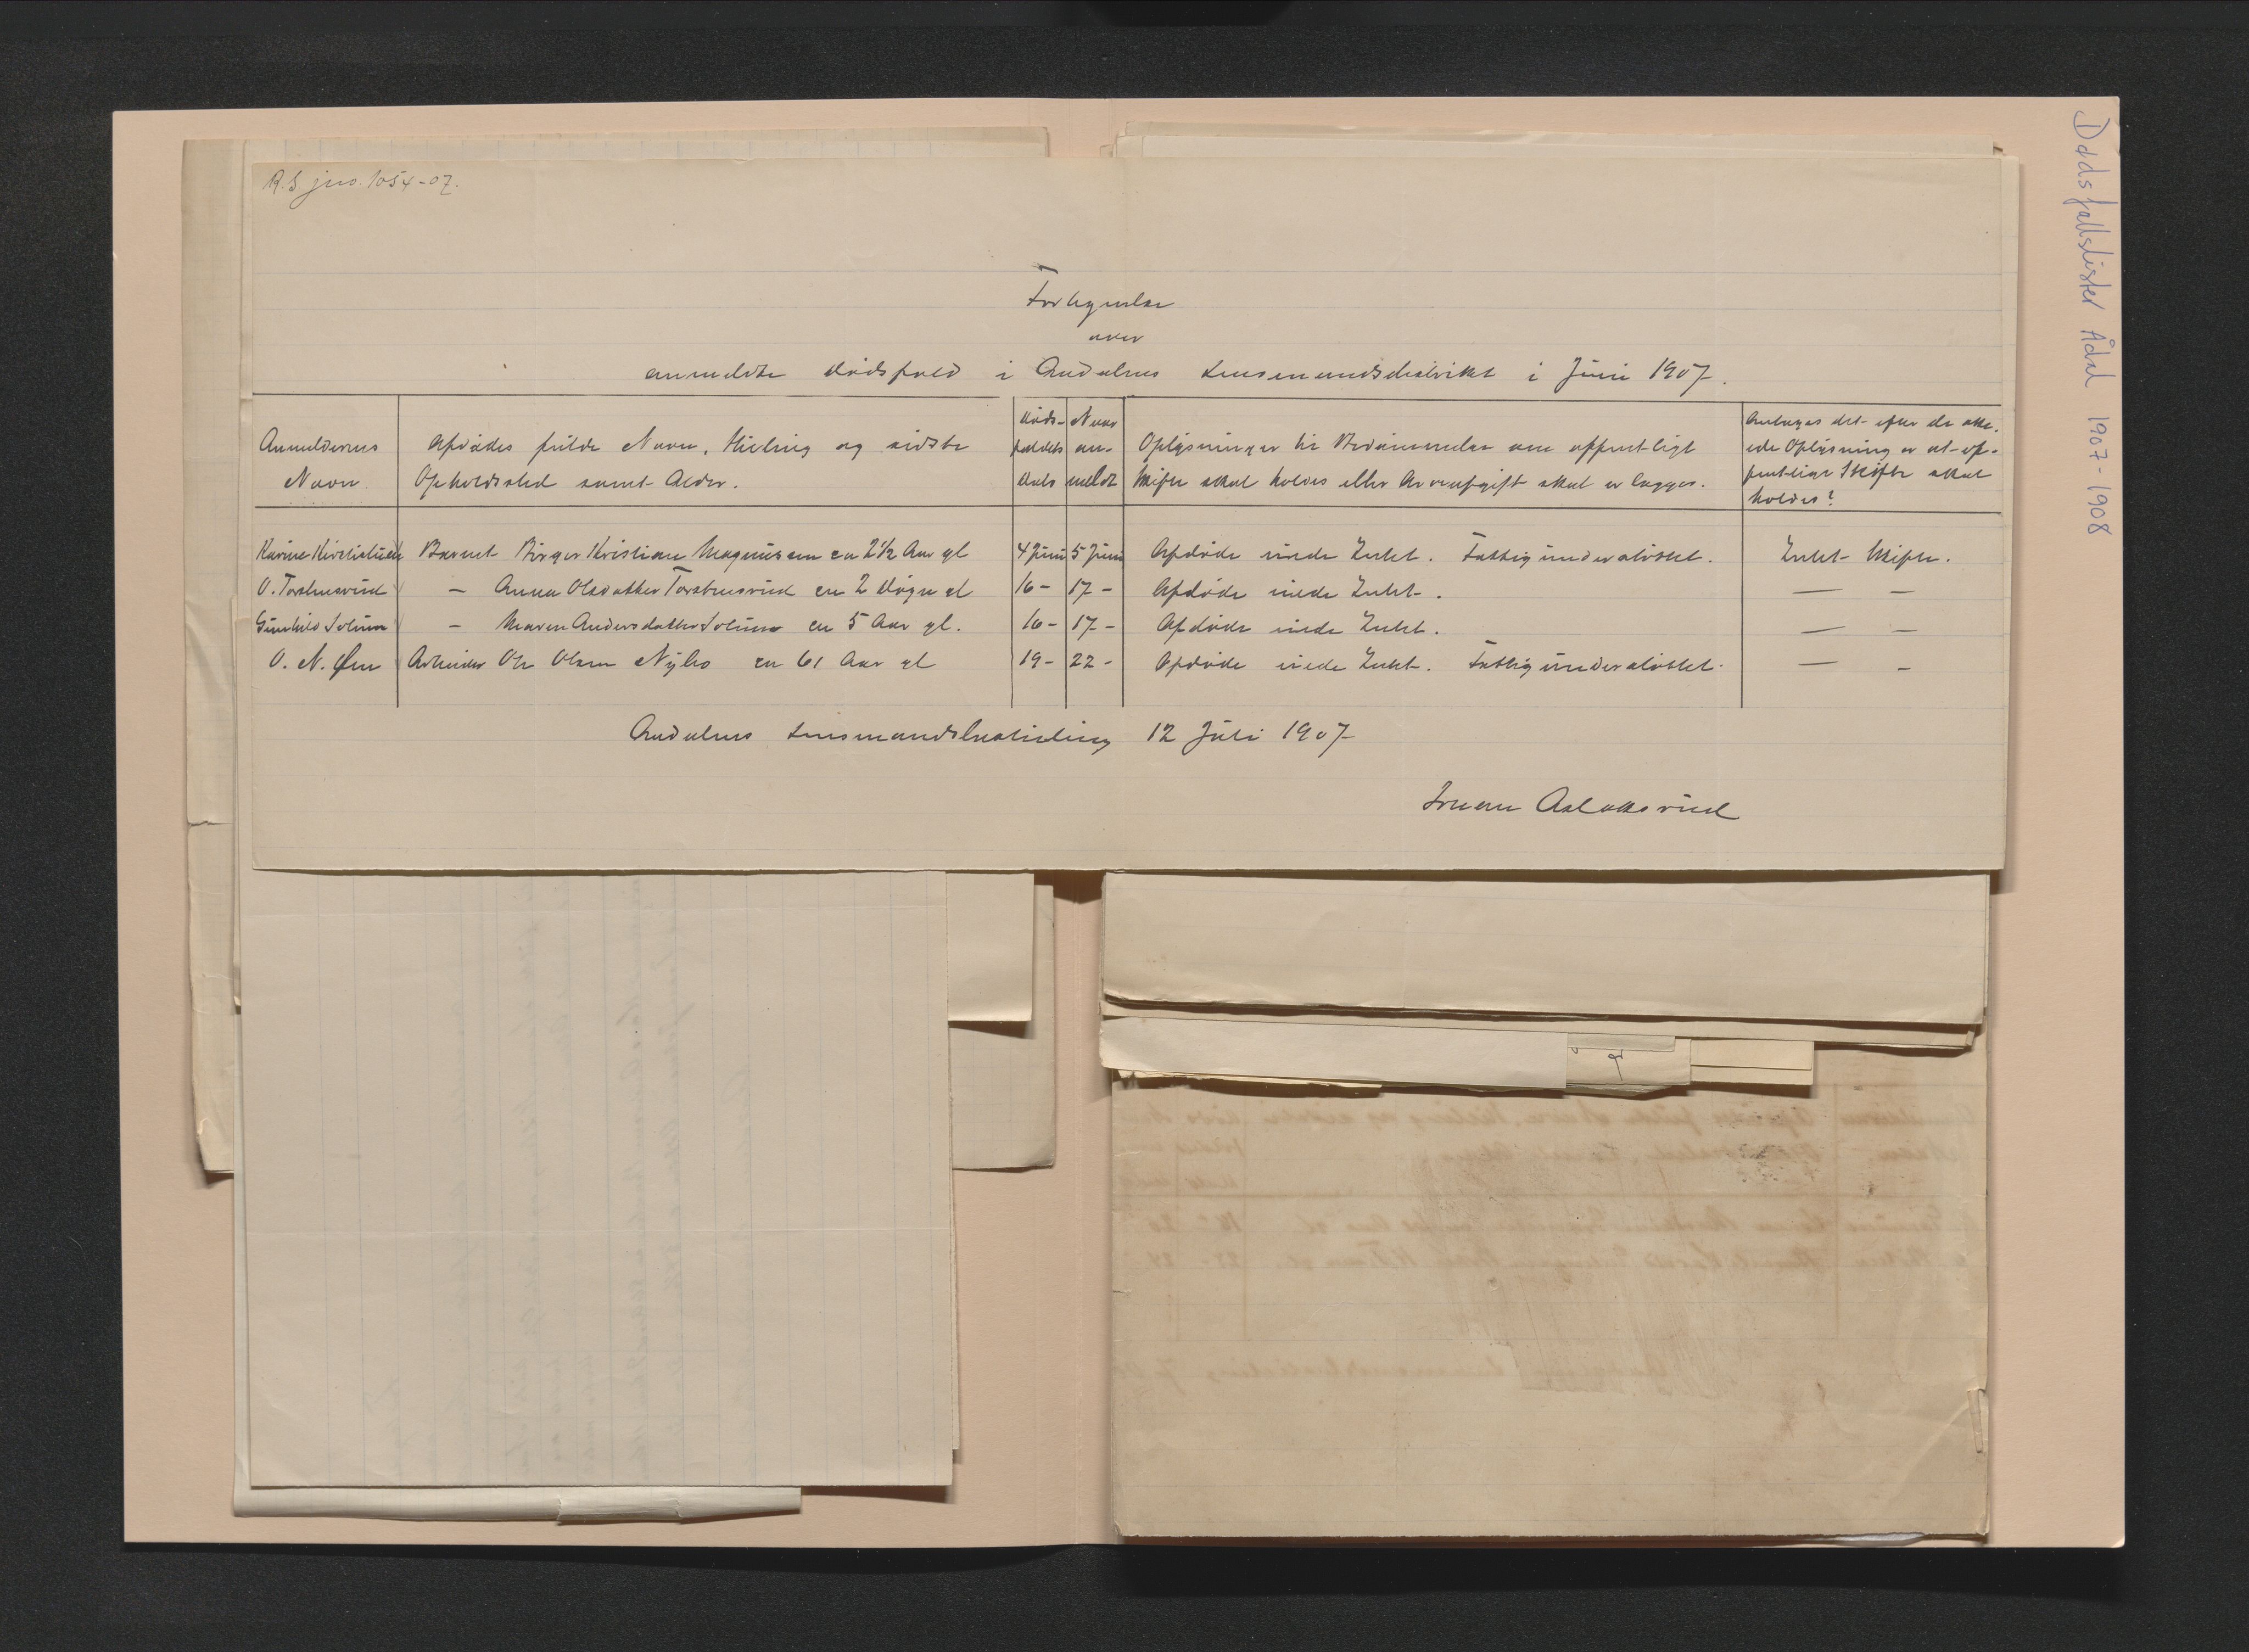 R.S jno. 1054-07.
Fortegnelse
over
anmeldte dødsfald i Aadalens Lensmandsdistrikt i Juni 1907.
Anmelderens Navn
Afdødes fulde Navn, Stilling og sidste Opholdssted samt Alder.
Døds-faldets Dato
Naar an-meldt
Oplysninger til Bedømmelse om offentligt Skifte skal holdes eller Arveafgift skal erlægges.
Antages det efter de skeede Oplysning er at offentligt Skifte skal holdes?
Karine Kristiansen Barnet Birger Kristian Magnussen ca 2½ Aar gl 4 Juni 5 Juni Afdøde eiede Intet. Fattigunderstøttet. Intet Skifte.
O. Torstensrud - Anna Olsdatter Torstensrud ca 2 Døgn gl 16 - 17 - Afdøde eiede Intet. — -
Gunhild Solum - Maren Andersdatter Solum ca 5 Aar gl. 16 - 17 - Afdøde eiede Intet. — -
O. N. Øen Arbeider Ole Olsen Nybo ca 61 Aar gl 19 - 22 - Afdøde eiede Intet. Fattigunderstøttet. — -
Aadalens Lensmandsbestilling 12 Juli 1907
Aslaksrud
Dødsfallslister Ådal 1907-1908